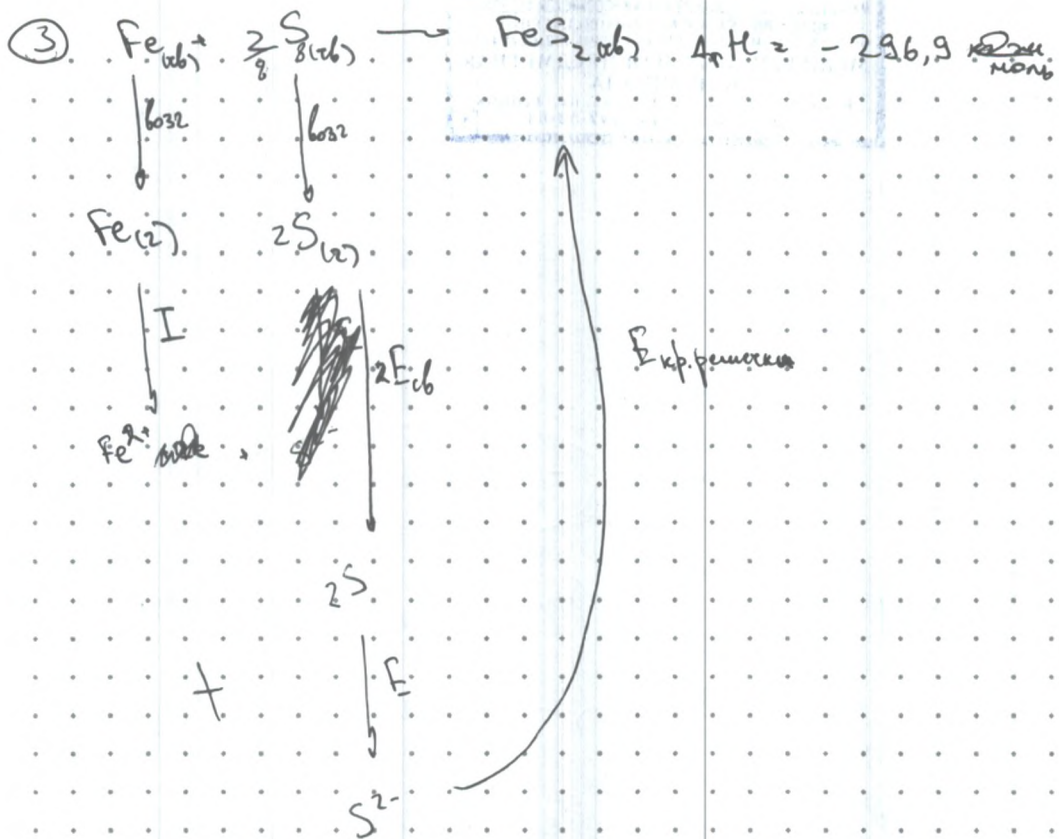 ③ Fe(тв) + 2/8 S8(тв) → FeS2(тв) ΔrH = - 296,9 кДж/моль
возг возг
Fe(г) 2S(г)
I
2Eсв
Eкр.решётки
Fe2+
2S
+ E
S2-